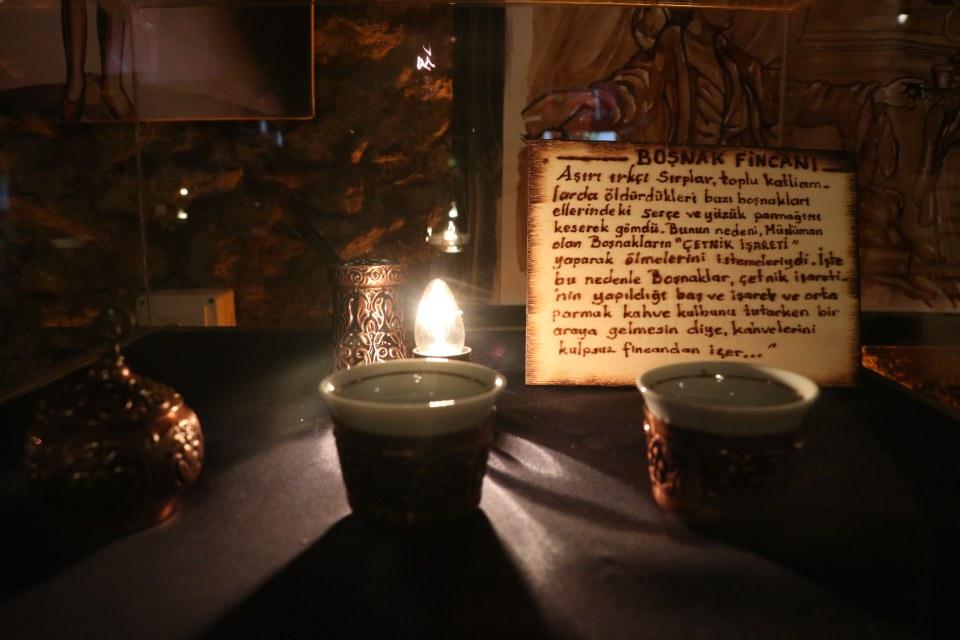 BOŞNAK FİNCANI
Aşırı ırkçı Sırplar, toplu katliam-
larda öldürdükleri bazı boşnakları
ellerindeki serçe ve yüzük parmağını
keserek gömdü. Bunun nedeni, Müslüman
olan Boşnakların "ÇETNİK İŞARETİ"
yaparak ölmelerini istemeleriydi. İşte
bu nedenle Boşnaklar, çetnik işareti-
'nin yapıldığı baş ve işaret ve orta
parmak kahve kulbunu tutarken bir
araya gelmesin diye, kahvelerini
kulpsuz fincandan içer..."